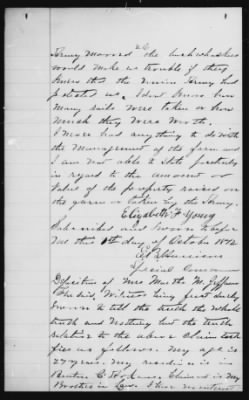 Army married the bushwhackers
would make us trouble if they
knew that the Union Army had
I dont know how
many rails were taken or how
much they were worth.
I never had anything to do with
the management of the farm and
I am not able to state
in regard to the amount or
value of the property raised on
the farm or taken by the Army.
Elizabeth F Young
Subscribed and sworn to before
me this day of October 1872
Special Commr
Deposition of Mrs Martha M.
The said Witness being first duly
sworn to tell the truth the whole
truth and nothing but the truth
relative to the above claim testi-
fies as follows. My age is
27 years, my residence is in
Claimant is my
Brother in Law. I have